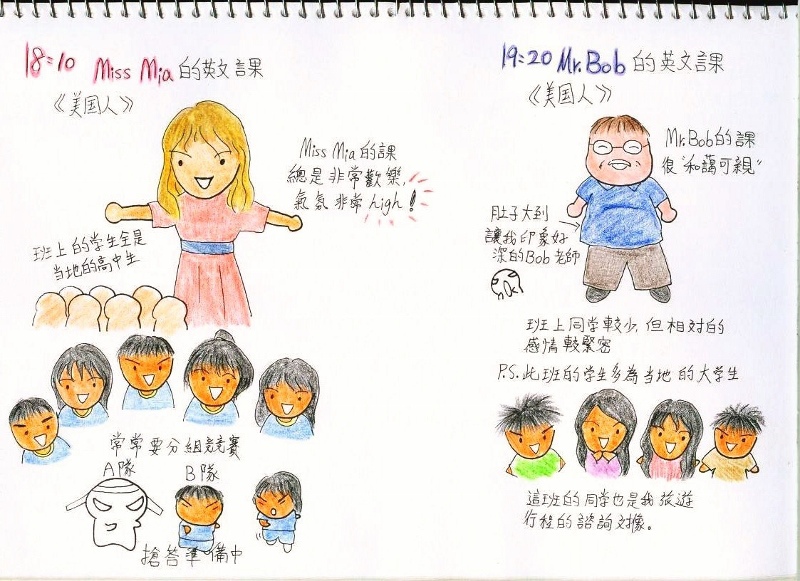 18:10 Miss Mia 的英文課
《美国人》
Miss Mia 的課
總是非常歡樂,
氣氛非常 high!
班上的学生全是
当地的高中生
常常要分組競賽
A隊 B隊
搶答準備中
19:20 Mr.Bob 的英文課
《美国人》
Mr.Bob的課
很"和藹可親"
肚子大到
讓我印象好
深的Bob老師
班上同学較少,但相对的
感情較緊密
P.S.此班的学生多為当地的大学生
這班的同学也是我旅遊
行程的諮詢对像。